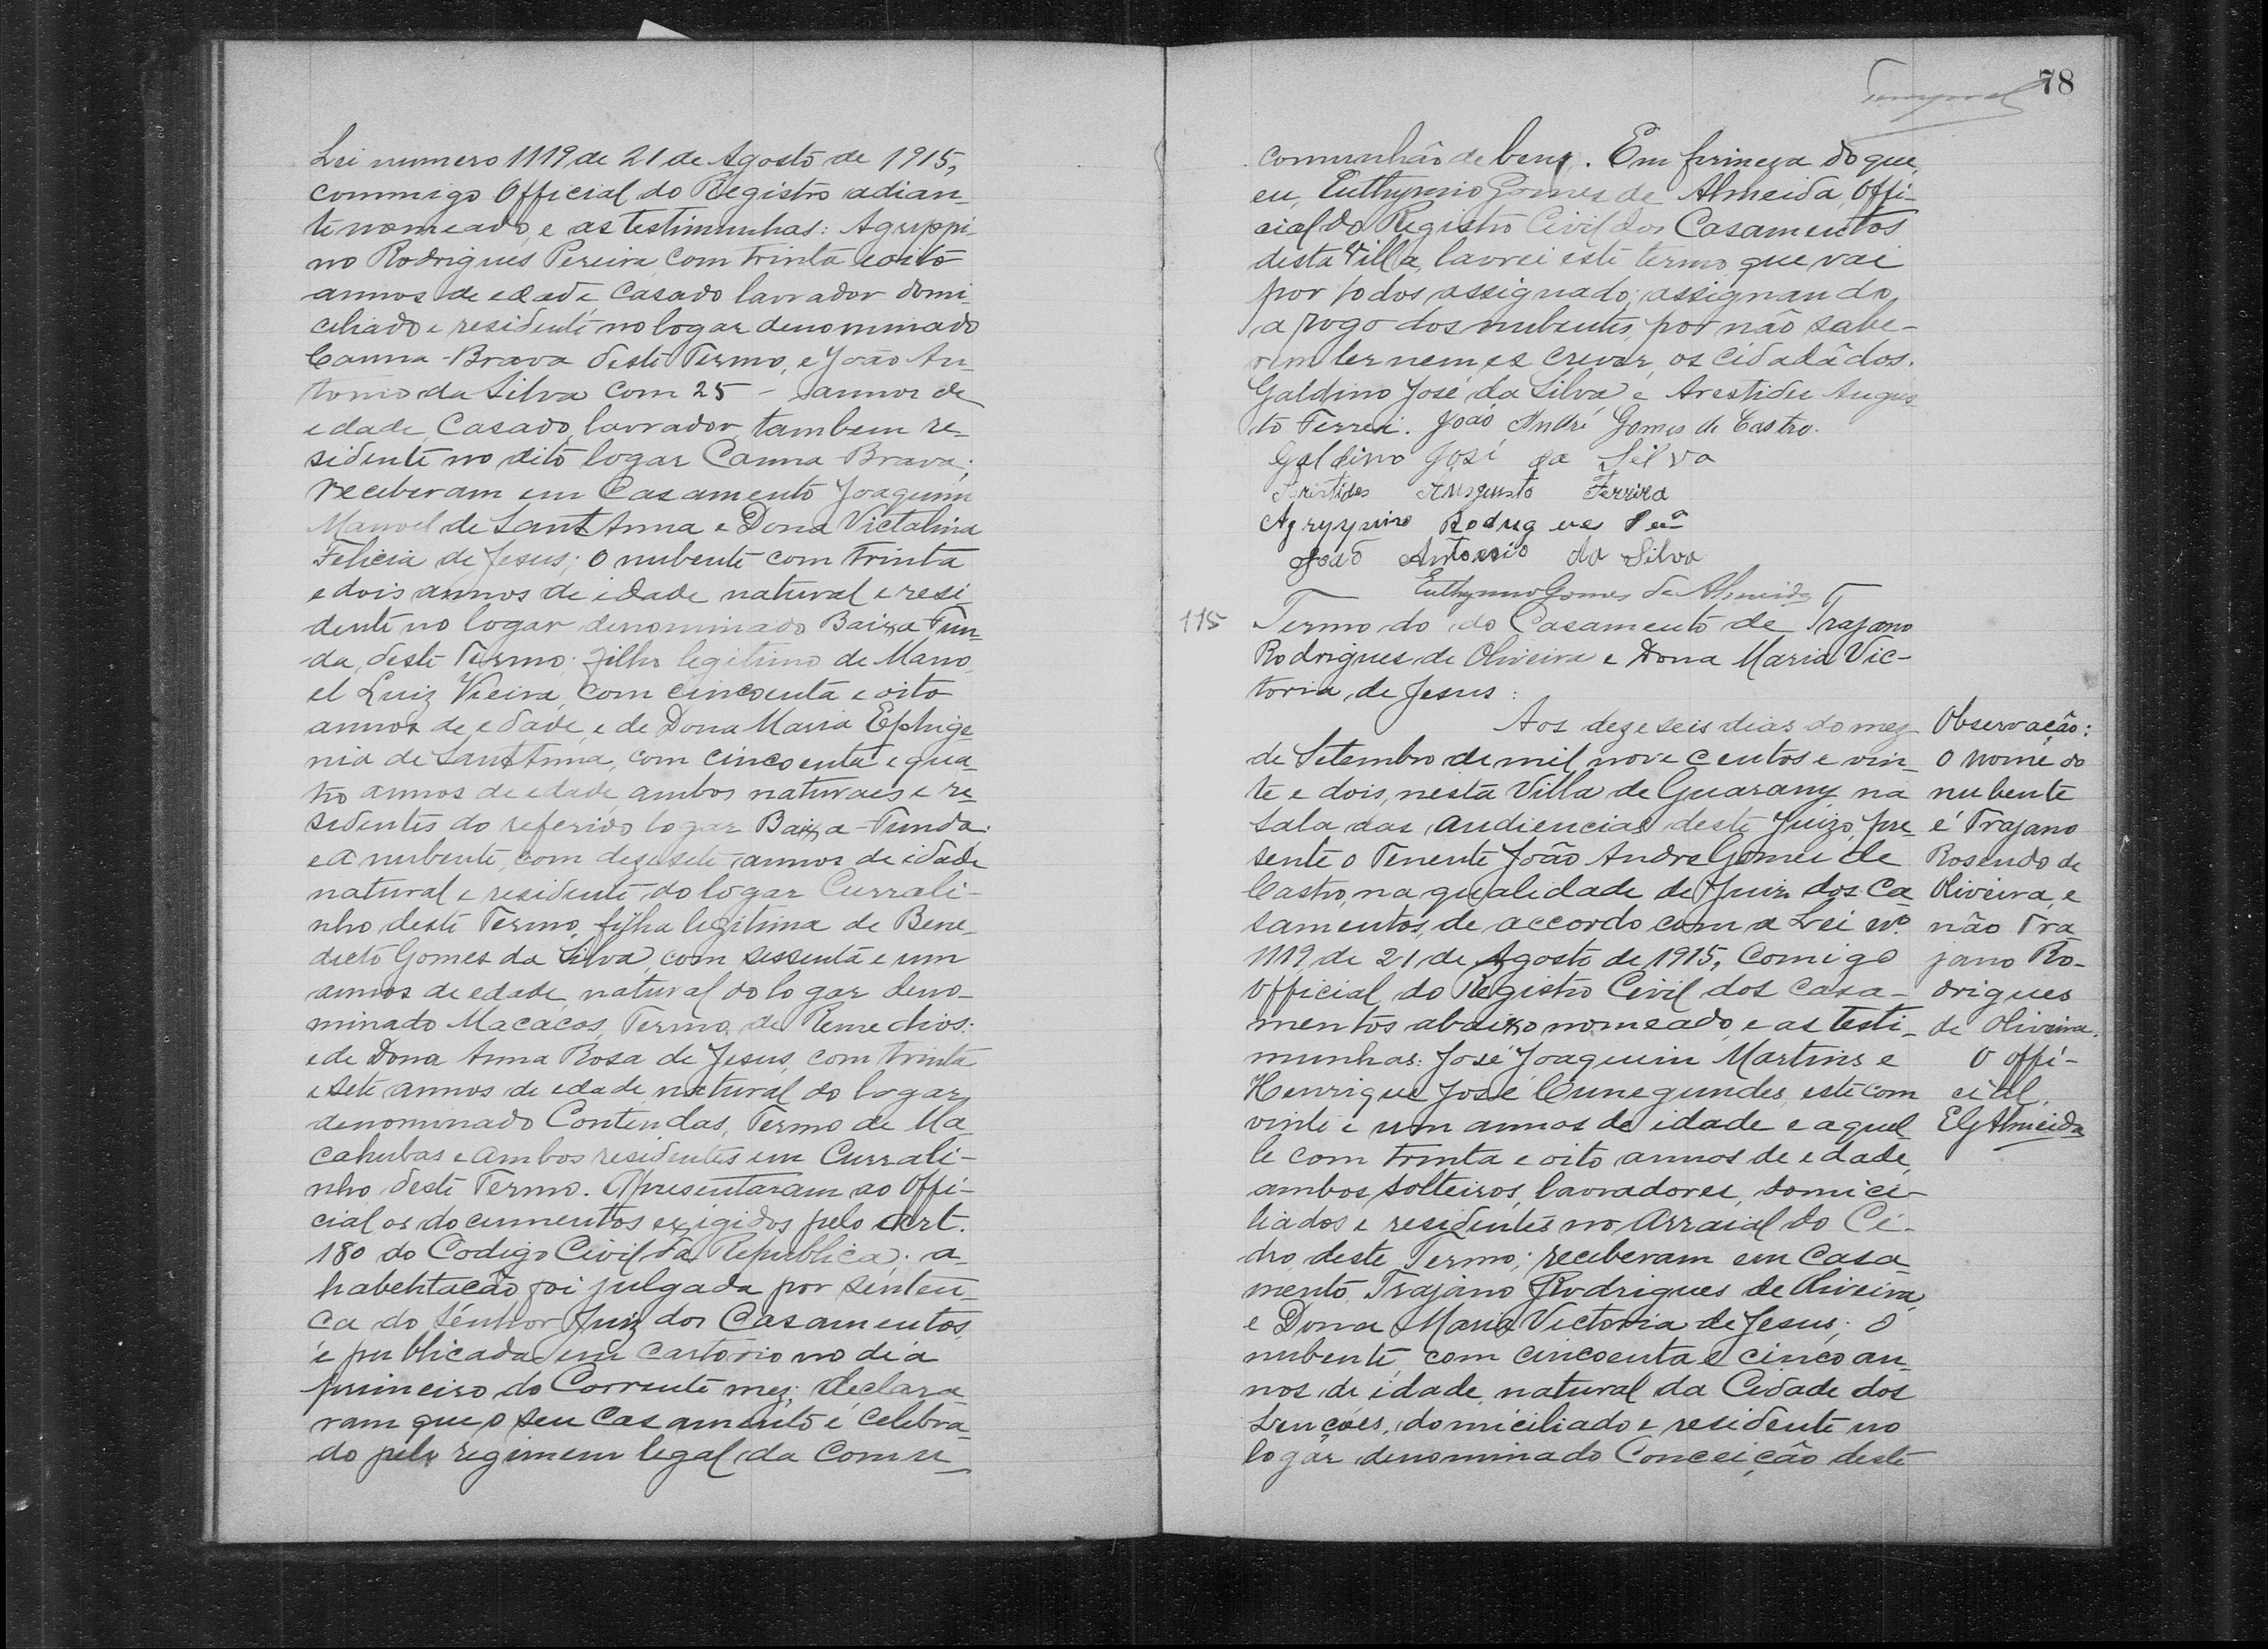 Lei numero 1119 de 21 de Agosto de 1915,
commigo Official do Registro adian-
te nomeado, e as testimunhas: Agrippi-
no Rodrigues Pereira, com trinta e oito
annos de edade, casado lavrador domi-
ciliado e residente no logar denominado
Canna-Brava deste Termo, e João An-
tonio da Silva com 25 - annos de
edade, casado, lavrador, tambem re-
sidente no dito logar Canna Brava;
receberam em Casamento Joaquim
Manoel de Sant Anna e Dona Victalina
Felicia de Jesus; o nubente com trinta
e dois annos de idade natural e resi-
dente no logar denominado Baixa Fun-
da, deste Termo; filho legitimo de Mano-
el Luiz Vieira, com cincoenta e oito
annos de edade, e de Dona Maria Ephige-
nia de Sant Anna, com cincoenta e qua-
tro annos de edade, ambos naturaes e re-
sidentes do referido logar Baixa-Funda;
e a nubente, com dezesete annos de idade
natural e residente do logar Currali-
nho deste Termo, filha legitima de Bene-
dicto Gomes da Silva, com sessenta e um
annos de edade, natural do logar deno-
minado Macacos, Termo de Remedios;
e de Dona Anna Rosa de Jesus, com trinta
e sete annos de edade, natural do logar
denominado Contendas, Termo de Ma-
cahubas e ambos residentes em Currali-
nho deste Termo. Apresentaram ao Offi-
cial os documentos exigidos pelo art.
180 do Codigo Civil da Republica; a
habelitação foi julgada por senten-
ça do Senhor Juiz dos Casamentos,
e publicada em cartorio no dia
primeiro do Corrente mez; declara-
ram que o seu casamento é celebra-
do pelo regimem legal da comu-
78
comunhão de bens. Em firmeza do que,
eu, Euthymio Gomes de Almeida, Offi-
cial do Registro Civil dos Casamentos
desta Villa, lavrei este termo que vai
por todos assignado; assignando
a rogo dos nubentes, por não sabe-
rem ler nem escrever, os cidadãos.
Galdino José da Silva e Arestides Augus-
to Ferrei. João André Gomes de Castro.
Galdino José da Silva
Aristides Augusto Ferreira
Agryppino Rodugues Pera
João Antonio da Silva
Euthymio Gomes de Almeida
115 Termo do do Casamento de Trajano
Rodrigues de Oliveira e Dona Maria Vic-
toria de Jesus:
Aos dezeseis dias do mez
de Setembro de mil nove centos e vin-
te e dois, nesta Villa de Guarany na
sala das audiencias deste Juizo, pre-
sente o Tenente João Andre Gomes de
Castro, na qualidade de Juiz dos Ca-
samentos, de accordo com a Lei nº
1119, de 21 de Agosto de 1915, comigo
Official do Registro Civil dos Casa-
mentos abaixo nomeado, e as testi-
munhas: José Joaquim Martins e
Henrique José Cunegundes, este com
vinte e um annos de idade e aquel-
le com trinta e oito annos de edade,
ambos solteiros, lavradores, domici-
liados e residentes no Arraial do Ce-
dro, deste Termo; receberam em casa
mento Trajano Rodrigues de Oliveira,
e Dona Maria Victoria de Jesus; O
nubente com cincoenta e cinco an-
nos de idade, natural da Cidade dos
Lençoes, domiciliado e residente no
logar denominado Conceição deste
Observação:
O nome do
nubente
é Trajano
Rosendo de
Oliveira, e
não Tra
jano Ro-
drigues
de Oliveira.
O offi-
cial.
EGAlmeida